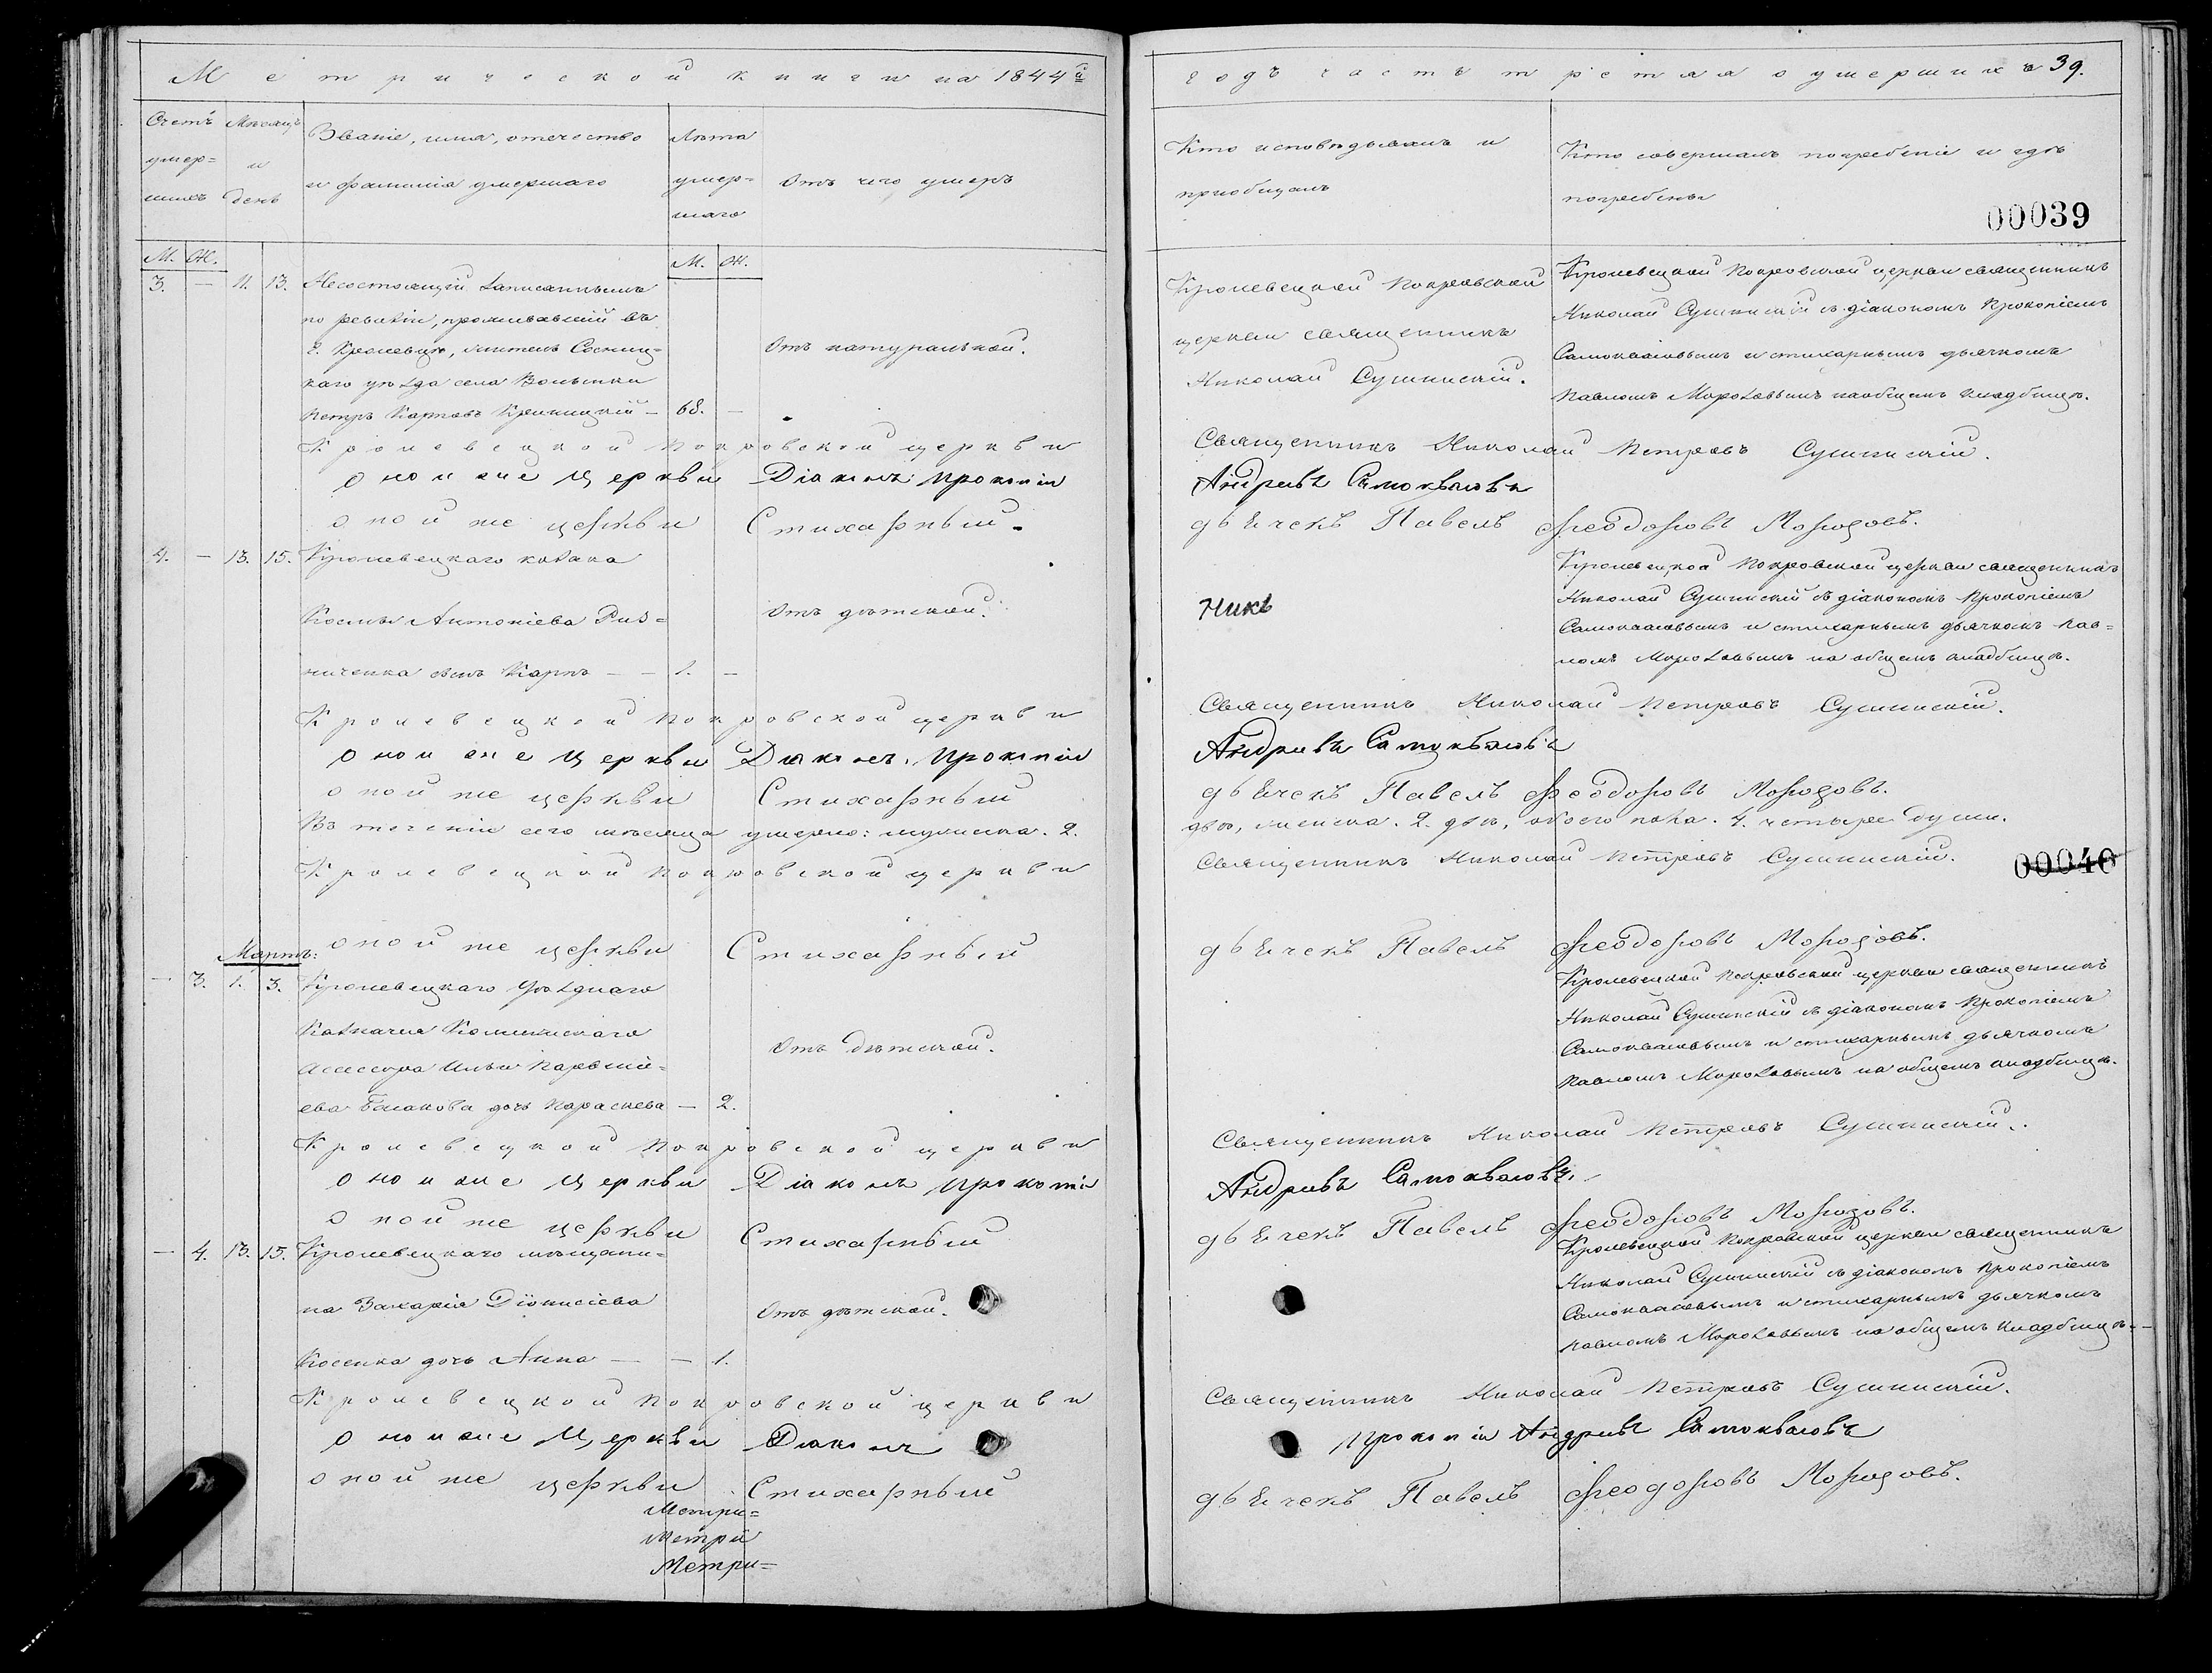 Метрической книги на 1844й
годъ часть третяя о умершихъ 39.
Счетъ умер=шихъ
Мѣсяцъ и день
Званіе, имя, отечество и фамилія умершаго
Лѣта умер=шаго
Отъ чего умеръ
Кто исповѣдывалъ и пріобщалъ
Кто совершалъ погребеніе и гдѣ погребены
00039
М. Ж.
М. Ж.
3. — 11. 13. Несостоящій записаннымъ
по ревизіи, проживавшій въ
г. Кролевцѣ, житель Сосниц=
каго уѣзда села Волынки
Петръ Карповъ — 68. —
Отъ натуральной.
Кролевецкой Покровской
церкви священникъ
Николай Сушинскій.
Кролевецкой Покровской церкви священникъ
Николай Сушинскій съ діакономъ Прокопіемъ
Самокваловымъ и стихарнымъ дьячкомъ
Павломъ Морозовымъ на общемъ кладбищѣ.
Кролевецкой Покровской церкви Священникъ Николай Петровъ Сушинскій.
оной же Церкви Діаконъ Прокопій Андріевъ Самокваловъ
оной же церкви Стихарный дьячекъ Павелъ Феодоровъ Морозовъ.
4. — 13. 15. Кролевецкаго козака
Космы Антоніева Риз=
ниченка сынъ Карпъ — — 1. —
Отъ дѣтской.
Никъ
Кролевецкой Покровской церкви священникъ
Николай Сушинскій съ діакономъ Прокопіемъ
Самокваловымъ и стихарнымъ дьячкомъ Пав=
ломъ Морозовымъ на общемъ кладбищѣ.
Кролевецкой Покровской церкви Священникъ Николай Петровъ Сушинскій.
оной же Церкви Діаконъ Прокопій Андріевъ Самокваловъ
оной же церкви Стихарный дьячекъ Павелъ Феодоровъ Морозовъ.
Въ теченіи сего мѣсяца умерло: мужиска. 2. два, женска. 2. двѣ, обоего пола. 4. четыре души.
Кролевецкой Покровской церкви Священникъ Николай Петровъ Сушинскій.
00040
оной же церкви Стихарный дьячекъ Павелъ Феодоровъ Морозовъ.
Мартъ:
— 3. 1. 3. Кролевецкаго Уѣзднаго
Казначея Колежскаго
Ассесора Ильи
дочь Параскева — 2.
Отъ дѣтской.
Кролевецкой Покровской церкви священникъ
Николай Сушинскій съ діакономъ Прокопіемъ
Самокваловымъ и стихарнымъ дьячкомъ
Павломъ Морозовымъ на общемъ кладбищѣ.
Кролевецкой Покровской церкви Священникъ Николай Петровъ Сушинскій.
оной же Церкви Діаконъ Прокопій Андріевъ Самокваловъ.
оной же церкви Стихарный дьячекъ Павелъ Феодоровъ Морозовъ.
— 4. 13. 15. Кролевецкаго мѣщани=
на Захарія Діонисіева
Косенка дочь Анна — — 1.
Отъ дѣтской.
Кролевецкой Покровской церкви священникъ
Николай Сушинскій съ діакономъ Прокопіемъ
Самокваловымъ и стихарнымъ дьячкомъ
Павломъ Морозовымъ на общемъ кладбищѣ.
Кролевецкой Покровской церкви Священникъ Николай Петровъ Сушинскій.
оной же Церкви Діаконъ Прокопій Андріевъ Самокваловъ
оной же церкви Стихарный дьячекъ Павелъ Феодоровъ Морозовъ.
Метри=
Метри
Метри=